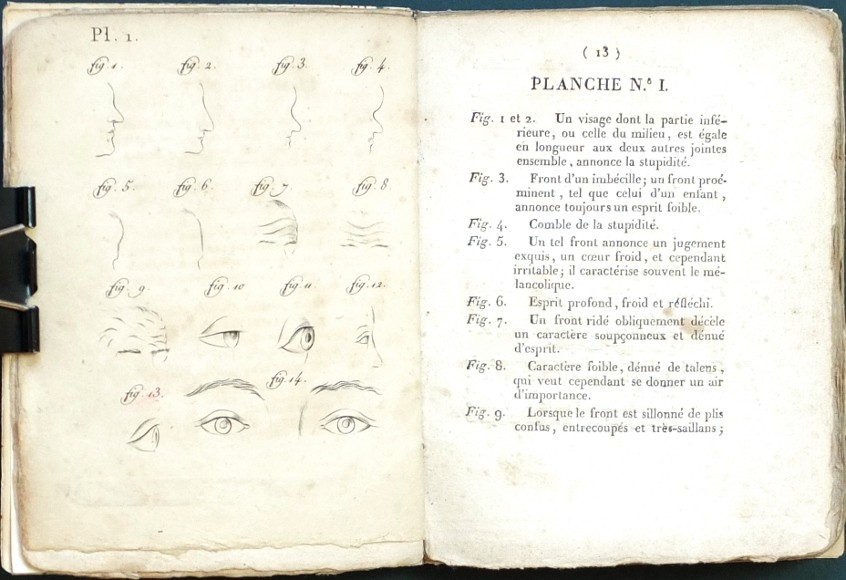 Pl. 1.
fig. 1. fig. 2. fig. 3. fig. 4.
fig. 5. fig. 6. fig. 7 fig. 8.
fig. 9. fig. 10 fig. 11 fig. 12.
fig. 13. fig. 14.
( 13 )
PLANCHE N.º I.
Fig. 1 et 2. Un visage dont la partie infé-
rieure, ou celle du milieu, est égale
en longueur aux deux autres jointes
ensemble, annonce la stupidité.
Fig. 3. Front d'un imbécille; un front proé-
minent, tel que celui d'un enfant,
annonce toujours un esprit foible.
Fig. 4. Comble de la stupidité.
Fig. 5. Un tel front annonce un jugement
exquis, un cœur froid, et cependant
irritable; il caractérise souvent le mé-
lancolique.
Fig. 6. Esprit profond, froid et réfléchi.
Fig. 7. Un front ridé obliquement décèle
un caractère soupçonneux et dénué
d'esprit.
Fig. 8. Caractère foible, dénué de talens,
qui veut cependant se donner un air
d'importance.
Fig. 9. Lorsque le front est sillonné de plis
confus, entrecoupés et très-saillans;